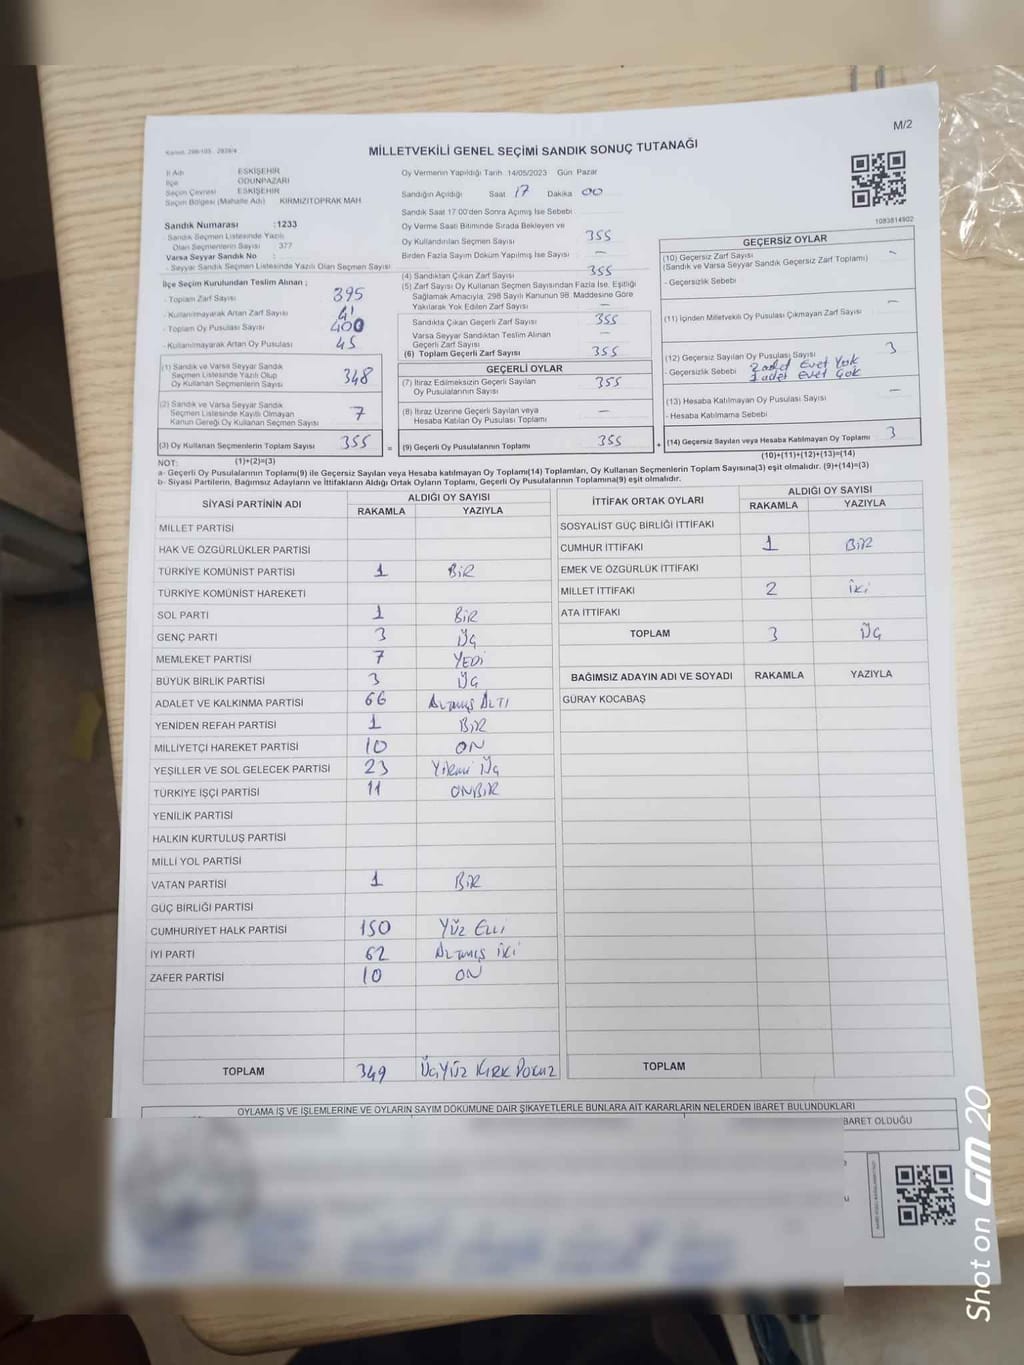 M/2
Kanun: 298/105 - 2839/4
MİLLETVEKİLİ GENEL SEÇİMİ SANDIK SONUÇ TUTANAĞI
İl Adı ESKİŞEHİR
İlçe ODUNPAZARI
Seçim Çevresi ESKİŞEHİR
Seçim Bölgesi (Mahalle Adı) KIRMIZITOPRAK MAH
Sandık Numarası :1233
- Sandık Seçmen Listesinde Yazılı
Olan Seçmenlerin Sayısı : 377
Varsa Seyyar Sandık No :
- Seyyar Sandık Seçmen Listesinde Yazılı Olan Seçmen Sayısı
İlçe Seçim Kurulundan Teslim Alınan ;
- Toplam Zarf Sayısı 395
- Kullanılmayarak Artan Zarf Sayısı 41
- Toplam Oy Pusulası Sayısı 400
- Kullanılmayarak Artan Oy Pusulası 45
(1) Sandık ve Varsa Seyyar Sandık
Seçmen Listesinde Yazılı Olup
Oy Kullanan Seçmenlerin Sayısı 348
(2) Sandık ve Varsa Seyyar Sandık
Seçmen Listesinde Kayıtlı Olmayan
Kanun Gereği Oy Kullanan Seçmen Sayısı 7
(3) Oy Kullanan Seçmenlerin Toplam Sayısı 355
(1)+(2)=(3)
Oy Vermenin Yapıldığı Tarih 14/05/2023 Gün Pazar
Sandığın Açıldığı Saat 17 Dakika 00
Sandık Saat 17:00'den Sonra Açılmış İse Sebebi
Oy Verme Saati Bitiminde Sırada Bekleyen ve
Oy Kullandırılan Seçmen Sayısı 355
Birden Fazla Sayım Döküm Yapılmış İse Sayısı —
(4) Sandıktan Çıkan Zarf Sayısı 355
(5) Zarf Sayısı Oy Kullanan Seçmen Sayısından Fazla İse, Eşitliği
Sağlamak Amacıyla, 298 Sayılı Kanunun 98. Maddesine Göre
Yakılarak Yok Edilen Zarf Sayısı —
Sandıkta Çıkan Geçerli Zarf Sayısı 355
Varsa Seyyar Sandıktan Teslim Alınan
Geçerli Zarf Sayısı —
(6) Toplam Geçerli Zarf Sayısı 355
GEÇERLİ OYLAR
(7) İtiraz Edilmeksizin Geçerli Sayılan
Oy Pusulalarının Sayısı 355
(8) İtiraz Üzerine Geçerli Sayılan veya
Hesaba Katılan Oy Pusulası Toplamı —
= (9) Geçerli Oy Pusulalarının Toplamı 355
1083814902
GEÇERSİZ OYLAR
(10) Geçersiz Zarf Sayısı —
(Sandık ve Varsa Seyyar Sandık Geçersiz Zarf Toplamı)
- Geçersizlik Sebebi
(11) İçinden Milletvekili Oy Pusulası Çıkmayan Zarf Sayısı —
(12) Geçersiz Sayılan Oy Pusulası Sayısı 3
- Geçersizlik Sebebi 2 adet Evet Yok
1 adet Evet Çok
(13) Hesaba Katılmayan Oy Pusulası Sayısı —
- Hesaba Katılmama Sebebi
+ (14) Geçersiz Sayılan veya Hesaba Katılmayan Oy Toplamı 3
(10)+(11)+(12)+(13)=(14)
NOT:
a- Geçerli Oy Pusulalarının Toplamı(9) ile Geçersiz Sayılan veya Hesaba katılmayan Oy Toplamı(14) Toplamları, Oy Kullanan Seçmenlerin Toplam Sayısına(3) eşit olmalıdır. (9)+(14)=(3)
b- Siyasi Partilerin, Bağımsız Adayların ve İttifakların Aldığı Ortak Oyların Toplamı, Geçerli Oy Pusulalarının Toplamına(9) eşit olmalıdır.
SİYASİ PARTİNİN ADI ALDIĞI OY SAYISI
RAKAMLA YAZIYLA
MİLLET PARTİSİ
HAK VE ÖZGÜRLÜKLER PARTİSİ
TÜRKİYE KOMÜNİST PARTİSİ 1 BİR
TÜRKİYE KOMÜNİST HAREKETİ
SOL PARTİ 1 BİR
GENÇ PARTİ 3 ÜÇ
MEMLEKET PARTİSİ 7 YEDİ
BÜYÜK BİRLİK PARTİSİ 3 ÜÇ
ADALET VE KALKINMA PARTİSİ 66 ALTMIŞ ALTI
YENİDEN REFAH PARTİSİ 1 BİR
MİLLİYETÇİ HAREKET PARTİSİ 10 ON
YEŞİLLER VE SOL GELECEK PARTİSİ 23 Yirmi Üç
TÜRKİYE İŞÇİ PARTİSİ 11 ONBİR
YENİLİK PARTİSİ
HALKIN KURTULUŞ PARTİSİ
MİLLİ YOL PARTİSİ
VATAN PARTİSİ 1 BİR
GÜÇ BİRLİĞİ PARTİSİ
CUMHURİYET HALK PARTİSİ 150 YÜZ ELLİ
İYİ PARTİ 62 ALTMIŞ İKİ
ZAFER PARTİSİ 10 ON
TOPLAM 349 ÜÇYÜZ KIRK DOKUZ
İTTİFAK ORTAK OYLARI ALDIĞI OY SAYISI
RAKAMLA YAZIYLA
SOSYALİST GÜÇ BİRLİĞİ İTTİFAKI
CUMHUR İTTİFAKI 1 BİR
EMEK VE ÖZGÜRLÜK İTTİFAKI
MİLLET İTTİFAKI 2 İki
ATA İTTİFAKI
TOPLAM 3 ÜÇ
BAĞIMSIZ ADAYIN ADI VE SOYADI RAKAMLA YAZIYLA
GÜRAY KOCABAŞ
TOPLAM
OYLAMA İŞ VE İŞLEMLERİNE VE OYLARIN SAYIM DÖKÜMÜNE DAİR ŞİKAYETLERLE BUNLARA AİT KARARLARIN NELERDEN İBARET BULUNDUKLARI
BARET OLDUĞU
Shot on GM 20